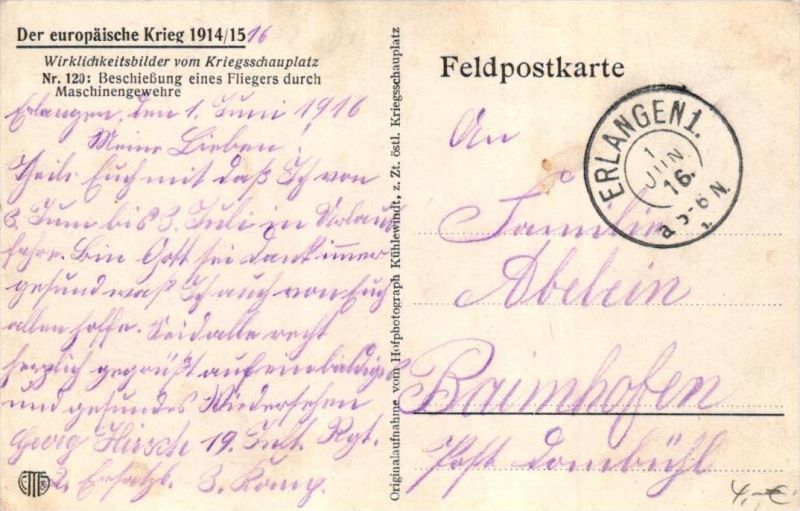 Der europäische Krieg 1914/15 16
Wirklichkeitsbilder vom Kriegsschauplatz
Nr. 120: Beschießung eines Fliegers durch
Maschinengewehre
Erlangen, den 1. Juni 1916
Meine Lieben!
Theile Euch mit daß Ich von
3. Juni bis 3. Juli in Urlaub
fahre. Bin Gott sei dank immer
gesund was Ich auch von Euch
allen hoffe. Seid alle recht
herzlich gegrüßt auf ein baldiges
und gesundes Wiedersehen
Georg Hirsch 19. Inft. Rgt.
2. Ersatzb. 3. Komp.
Originalaufnahme vom Hofphotograph Kühlewindt, z. Zt. östl. Kriegsschauplatz
Feldpostkarte
ERLANGEN 1.
1
JUN
16.
a 5-6 N.
An
Familie
Abelein
Baimhofen
Post Dombühl
4,-€